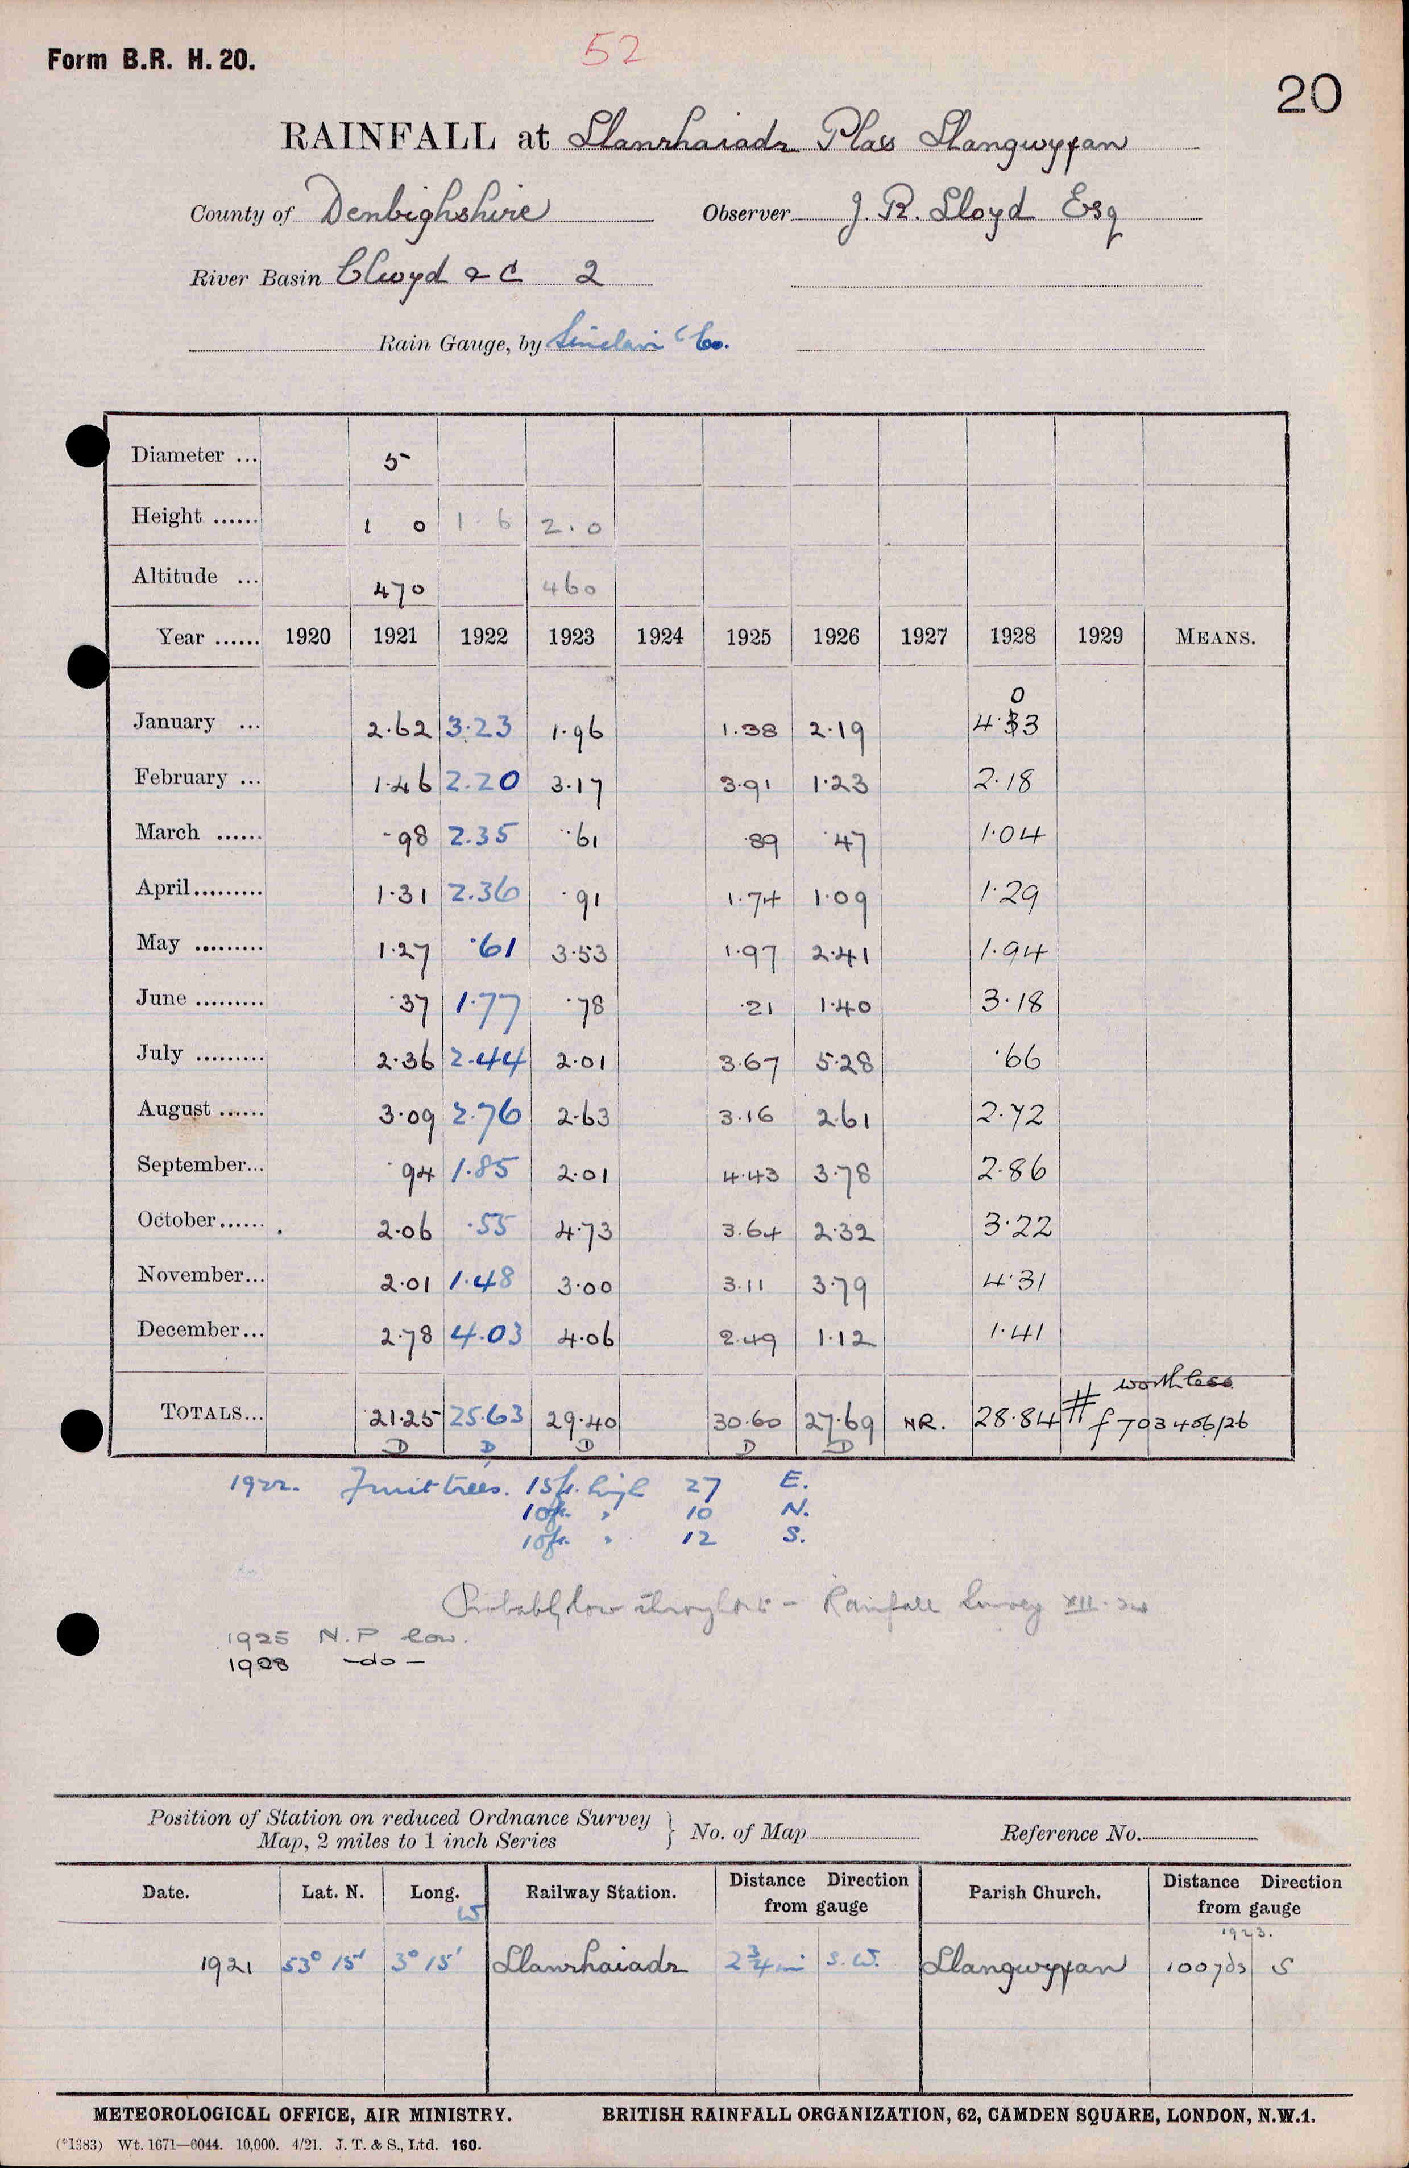 Form B.R. H. 20.
52
20
RAINFALL at Llanrhaiadr Plas Llangwyfan
County of Denbighshire Observer J. R. Lloyd Esq
River Basin Clwyd & C 2
Rain Gauge, by Sinclair & Co.
Diameter ... 5
Height ...... 1 0 1 6 2.0
Altitude ... 470 460
Year ...... 1920 1921 1922 1923 1924 1925 1926 1927 1928 1929 MEANS.
0
January ... 2.62 3.23 1.96 1.38 2.19 4.33
February ... 1.46 2.20 3.17 3.91 1.23 2.18
March ...... .98 2.35 .61 .89 .47 1.04
April......... 1.31 2.36 .91 1.74 1.09 1.29
May ......... 1.27 .61 3.53 1.97 2.41 1.94
June ......... .37 1.77 .78 .21 1.40 3.18
July ......... 2.36 2.44 2.01 3.67 5.28 .66
August ...... 3.09 2.76 2.63 3.16 2.61 2.72
September... .94 1.85 2.01 4.43 3.78 2.86
October...... 2.06 .55 4.73 3.64 2.32 3.22
November... 2.01 1.48 3.00 3.11 3.79 4.31
December... 2.78 4.03 4.06 2.49 1.12 1.41
worthless
TOTALS... 21.25 25.63 29.40 30.60 27.69 NR. 28.84 # f 703406/26
D D D D D
1922. Fruit trees. 15ft. high 27 E.
10ft. " 10 N.
10ft. " 12 S.
Probably low throughout - Rainfall Survey XII.
1925 N.P low.
1928 -do-
Position of Station on reduced Ordnance Survey
Map, 2 miles to 1 inch Series } No. of Map Reference No.
Date. Lat. N. Long. W Railway Station. Distance Direction from gauge Parish Church. Distance Direction from gauge
1923.
1921 53° 15' 3° 15' Llanrhaiadr 2 3/4 mi S.W. Llangwyfan 100 yds S
METEOROLOGICAL OFFICE, AIR MINISTRY. BRITISH RAINFALL ORGANIZATION, 62, CAMDEN SQUARE, LONDON, N.W.1.
(*1383) Wt. 1671—6044. 10,000. 4/21. J. T. & S., Ltd. 160.